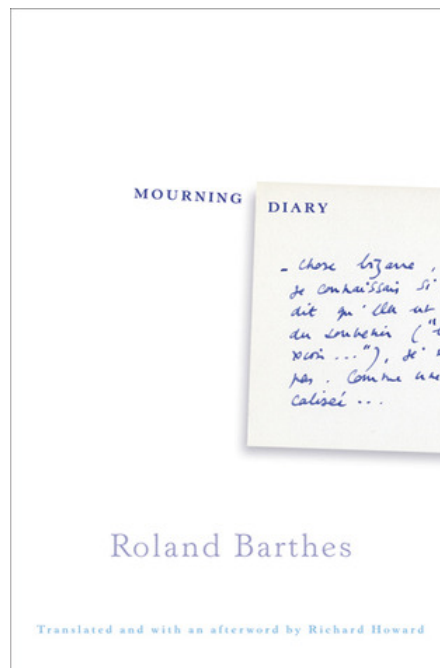 MOURNING DIARY
- Chose bizarre,
je connaissais si
dit qu'elle est
du souvenir ("
xion ..."), je
pas. Comme une
calisée ...
Roland Barthes
Translated and with an afterword by Richard Howard